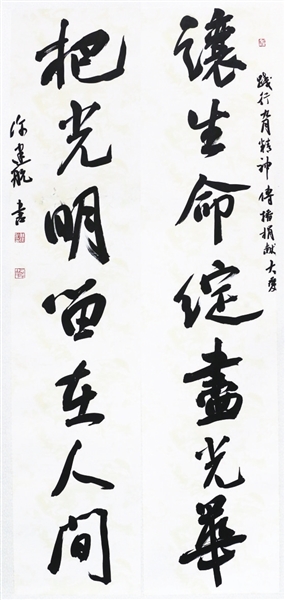 踐行 精神 傳播捐献大愛
讓生命綻盡光華
把光明留在人間
建航書